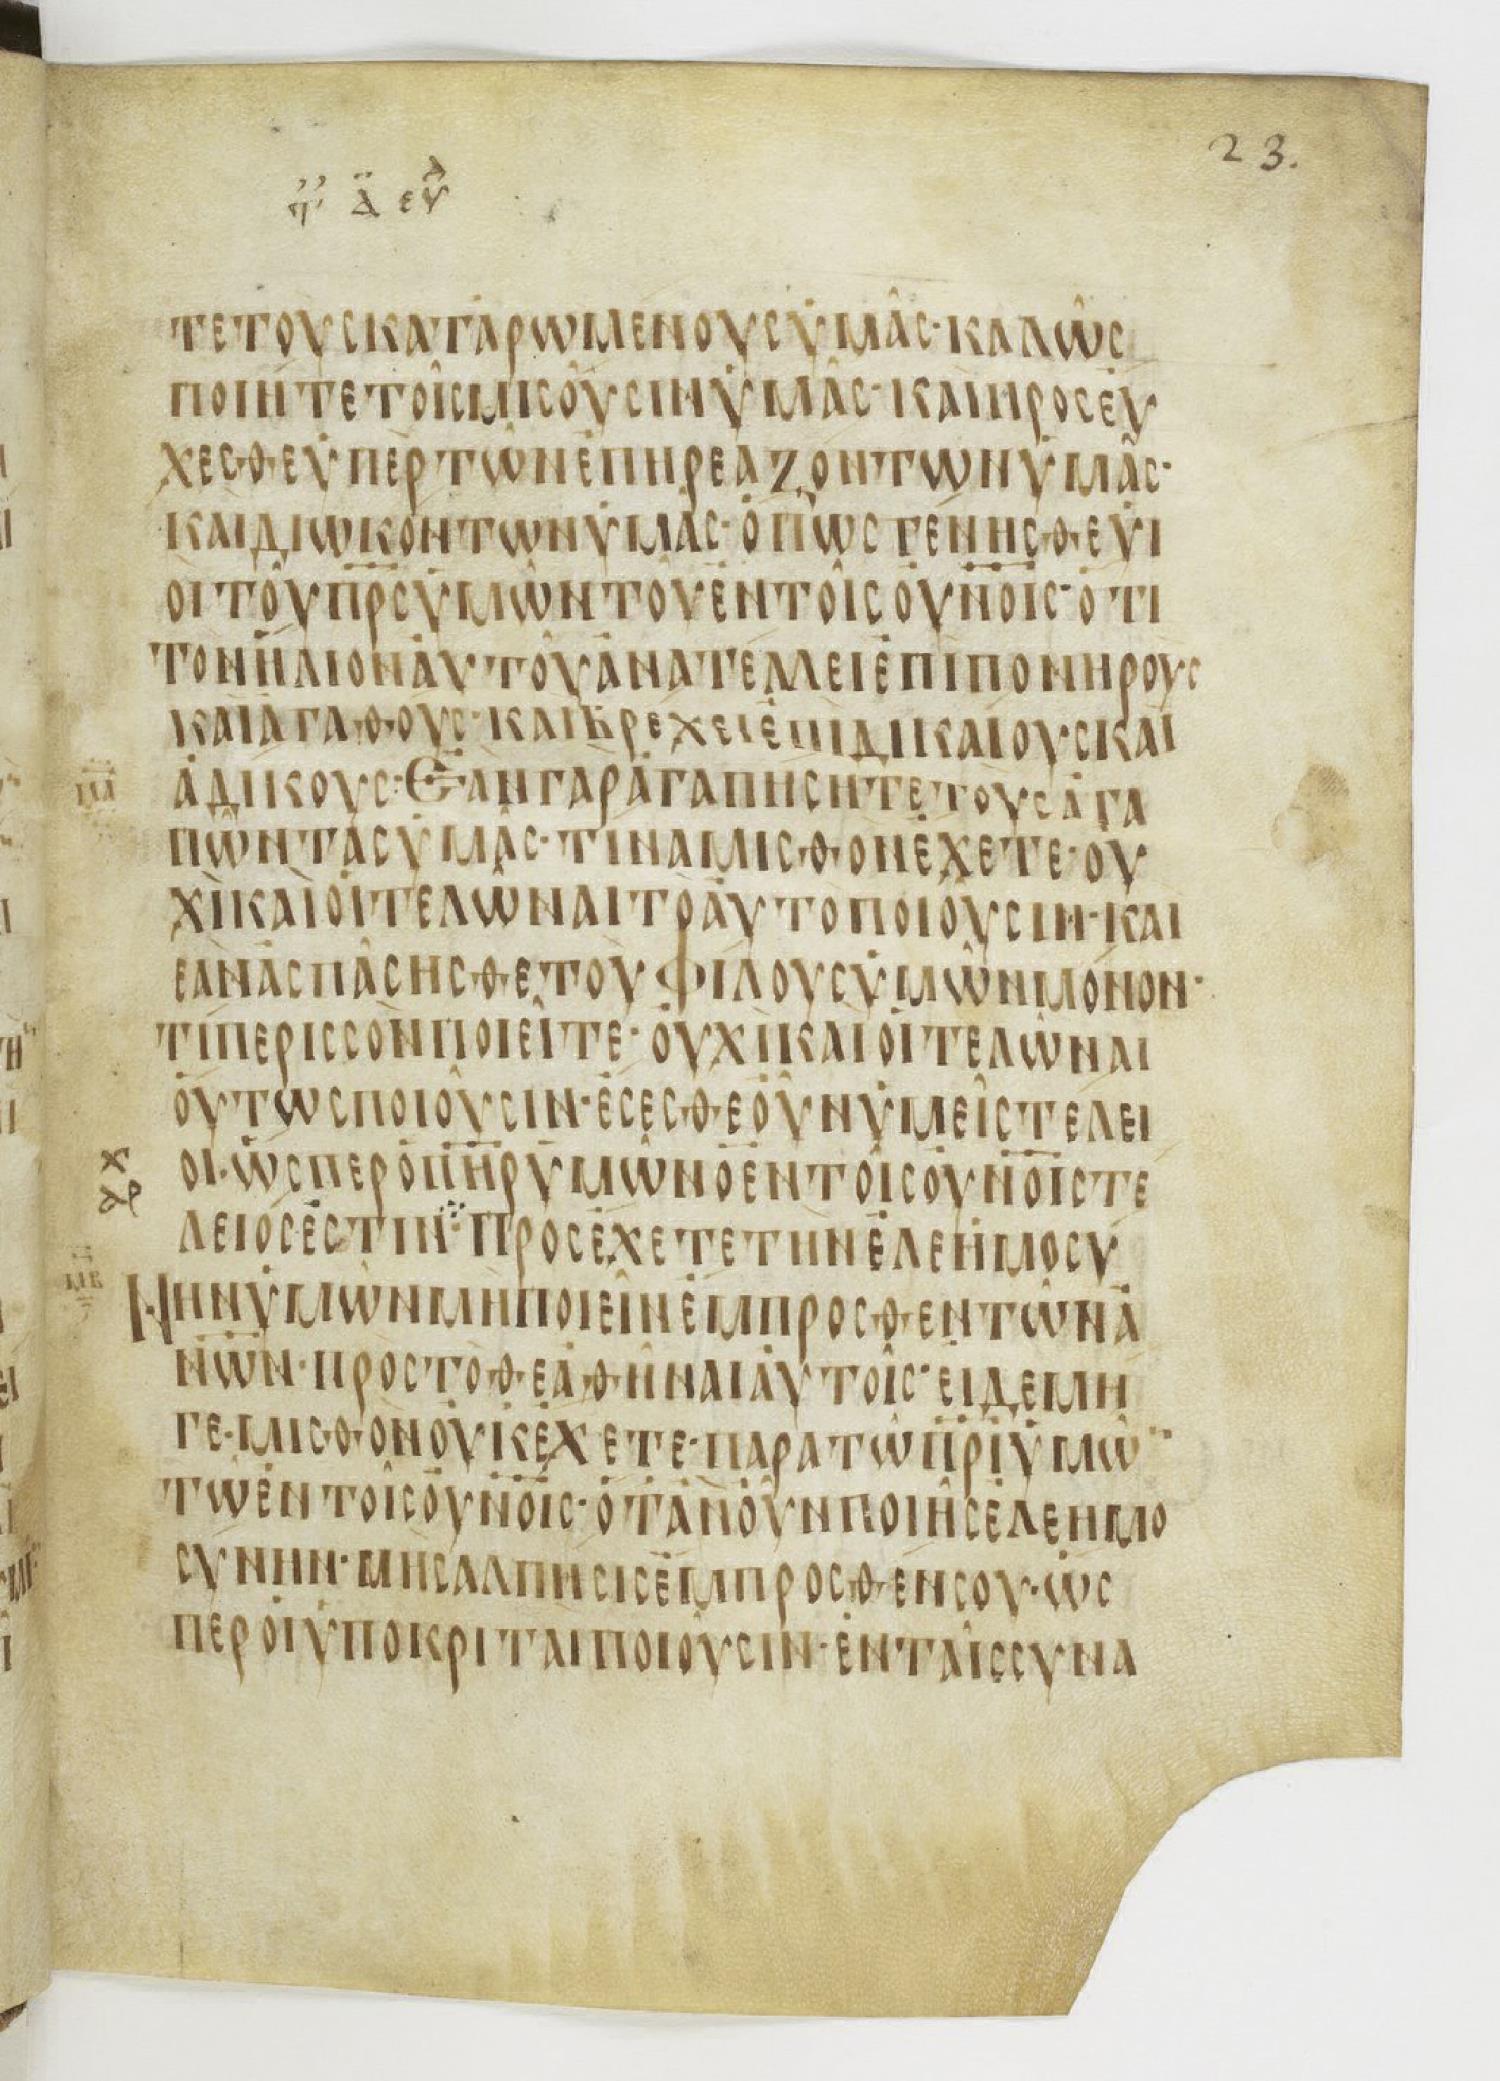 23.
ΤΕΤΟΥϹΚΑΤΑΡΩΜΕΝΟΥϹΥΜΑϹ·ΚΑΛΩϹ
ΠΟΙΗΤΕΤΟΙϹΜΙϹΟΥϹΙΝΥΜΑϹ·ΚΑΙΠΡΟϹΕΥ
ΧΕϹΘΕΥΠΕΡΤΩΝΕΠΗΡΕΑΖΟΝΤΩΝΥΜΑϹ·
ΚΑΙΔΙΩΚΟΝΤΩΝΥΜΑϹ·ΟΠΩϹΓΕΝΗϹΘΕΥΙ
ΟΙΤΟΥΠΡϹΥΜΩΝΤΟΥΕΝΤΟΙϹΟΥΝΟΙϹ·ΟΤΙ
ΤΟΝΗΛΙΟΝΑΥΤΟΥΑΝΑΤΕΛΛΕΙΕΠΙΠΟΝΗΡΟΥϹ
ΚΑΙΑΓΑΘΟΥϹ·ΚΑΙΒΡΕΧΕΙΕΠΙΔΙΚΑΙΟΥϹΚΑΙ
ΑΔΙΚΟΥϹ:ΕΑΝΓΑΡΑΓΑΠΗϹΗΤΕΤΟΥϹΑΓΑ
ΠΩΝΤΑϹΥΜΑϹ·ΤΙΝΑΜΙϹΘΟΝΕΧΕΤΕ·ΟΥ
ΧΙΚΑΙΟΙΤΕΛΩΝΑΙΤΟΑΥΤΟΠΟΙΟΥϹΙΝ·ΚΑΙ
ΕΑΝΑϹΠΑϹΗϹΘΕΤΟΥΦΙΛΟΥϹΥΜΩΝΜΟΝΟΝ·
ΤΙΠΕΡΙϹϹΟΝΠΟΙΕΙΤΕ·ΟΥΧΙΚΑΙΟΙΤΕΛΩΝΑΙ
ΟΥΤΩϹΠΟΙΟΥϹΙΝ·ΕϹΕϹΘΕΟΥΝΥΜΕΙϹΤΕΛΕΙ
ΟΙ·ΩϹΠΕΡΟΠΗΡΥΜΩΝΟΕΝΤΟΙϹΟΥΝΟΙϹΤΕ
ΛΕΙΟϹΕϹΤΙΝ·ΠΡΟϹΕΧΕΤΕΤΗΝΕΛΕΗΜΟϹΥ
ΝΗΝΥΜΩΝΜΗΠΟΙΕΙΝΕΜΠΡΟϹΘΕΝΤΩΝΑ
ΝΩΝ·ΠΡΟϹΤΟΘΕΑΘΗΝΑΙΑΥΤΟΙϹ·ΕΙΔΕΜΗ
ΓΕ·ΜΙϹΘΟΝΟΥΚΕΧΕΤΕ·ΠΑΡΑΤΩΠΡΙΥΜΩ
ΤΩΕΝΤΟΙϹΟΥΝΟΙϹ·ΟΤΑΝΟΥΝΠΟΙΗϹΕΛΕΗΜΟ
ϹΥΝΗΝ·ΜΗϹΑΛΠΗϹΙϹΕΜΠΡΟϹΘΕΝϹΟΥ·ΩϹ
ΠΕΡΟΙΥΠΟΚΡΙΤΑΙΠΟΙΟΥϹΙΝ·ΕΝΤΑΙϹϹΥΝΑ